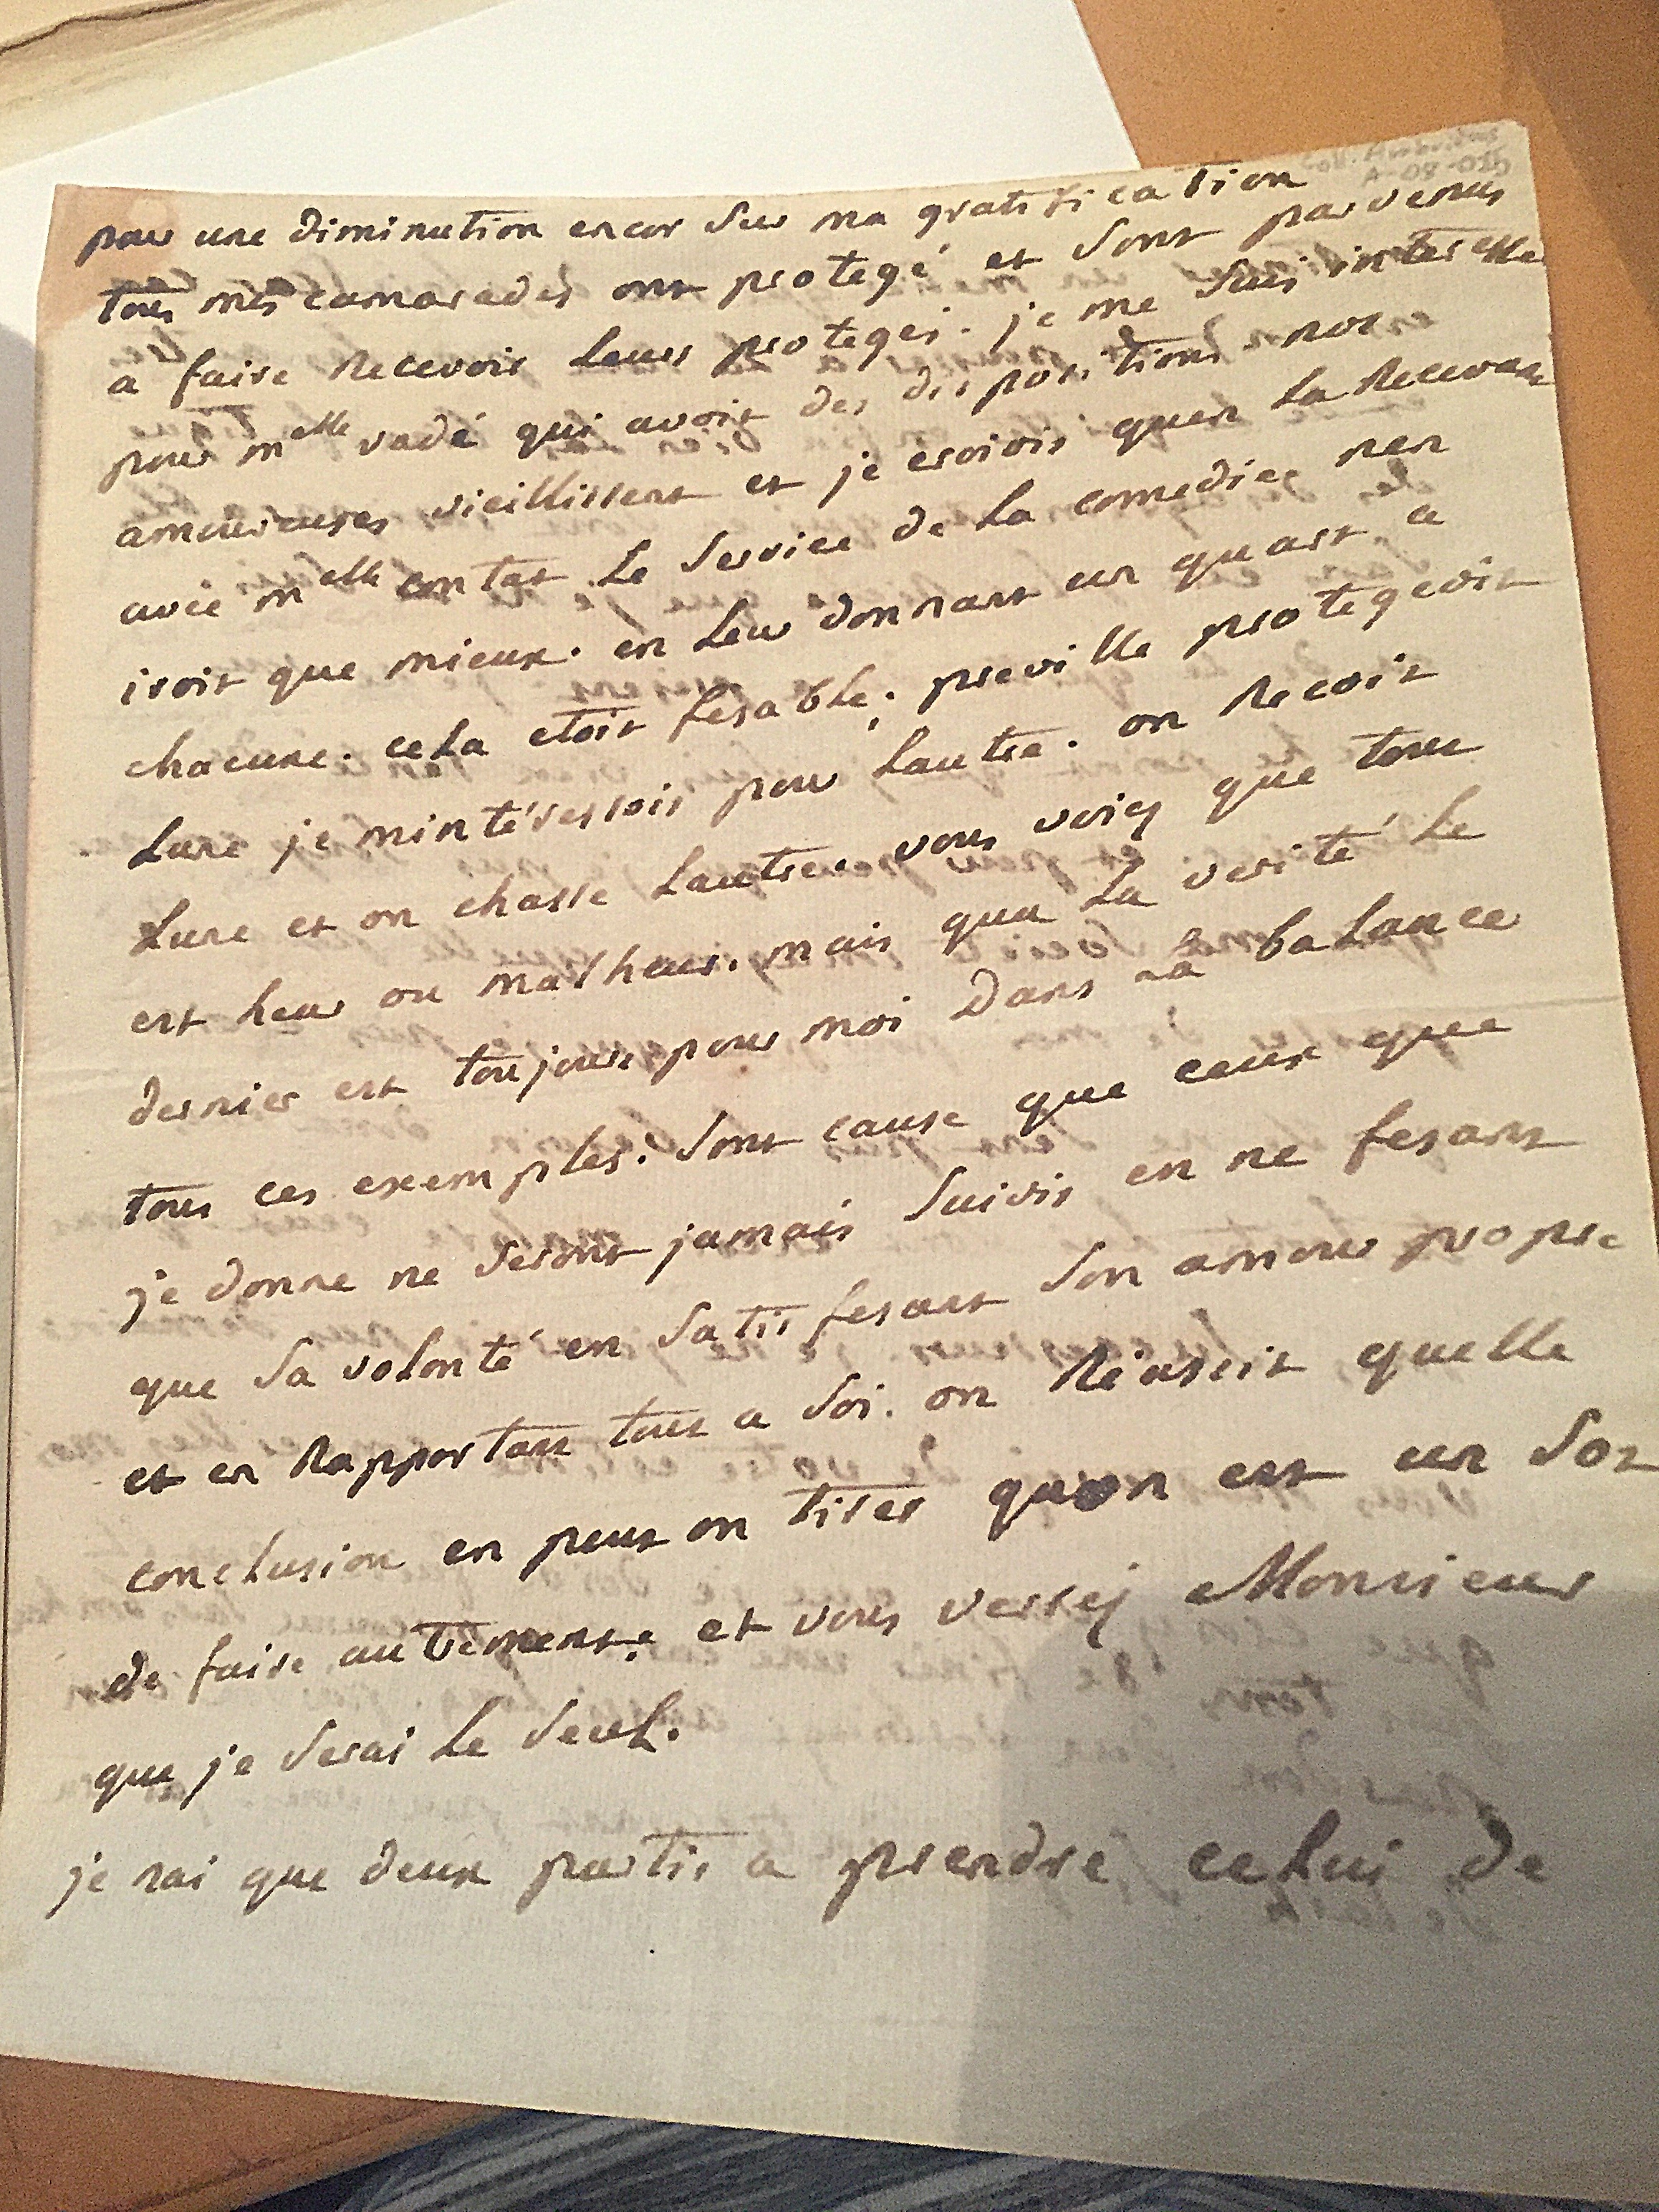 pour une diminution encor sur ma gratification
tous mes camarades ont protegé et sont parvenus
a faire recevoir leurs protegés. je me suis interessé
pour m elle vadé qui avoit des dispositions nos
amoureuses vieillissent et je croiois quen la recevant
avec m elle contat le service de la comediee nen
iroit que mieux. en leur donnant un quart a
chacune. cela etoit fesable; preville protegeoit
lune je minteressois pour lautre. on recoit
lune et on chasse lautre. vous voiez que tout
est heur ou malheur. mais qua la verité le
dernier est toujours pour moi dans la balance
tous ces exemples. sont cause que ceux que
je donne ne seront jamais suivis en ne fesant
que sa volonté en satisfesant son amour propre
et en rapportant tout a soi. on reussit quelle
conclusion en peut on tirer quon est un sot
de faire autrement; et vous verrez Monsieur
que je serai le seul.
je nai que deux partis a prendre celui de